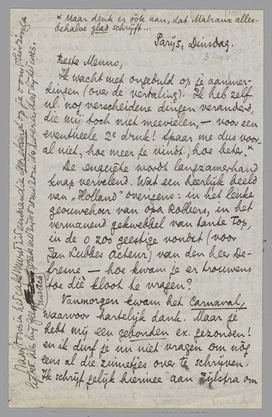 * Maar denk er óók aan, dat Malraux alles-
behalve glad schrijft...
Parijs, Dinsdag.
Beste Menno,
Ik wacht met ongeduld op je aanmer-
kingen (over de vertaling). Ik heb zelf
nl. nog verscheidene dingen veranderd,
die mij toch niet meevielen, — voor een
eventueele 2e druk! Spaar me dus voor-
al niet, hoe meer je vindt, hoe beter.*
De enquête wordt langzamerhand
knap vervelend. Wat een heerlijk beeld
van „Holland" overigens: in het leuke
geouwehoer van opa Robbers, in het
vermanend gekwebbel van tante Top,
in de o zoo geestige vondst (voor
Jan Lubbes acteur) van den heer De-
fresne — hoe kwam je er trouwens
toe die kloot te vragen?
Vanmorgen kwam het Carnaval,
waarvoor hartelijk dank. Maar je
hebt mij een gebonden ex. gezonden!
en ik durf je nu niet vragen om nóg
eens al die zinnetjes over te schrijven.
Ik schrijf gelijk hiermee aan Zijlstra om